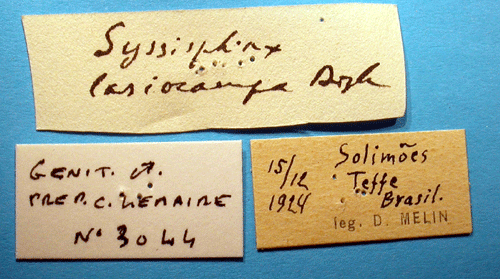 Syssisphinx
lasiocampa
GENIT. ♂.
PREP. C. LEMAIRE
N° 3044
15/12
1924
Solimões
Teffe
Brasil.
leg. D. MELIN